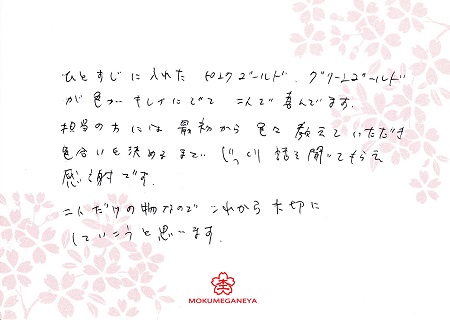 ひとすじに入れた ピンクゴールド、グリーンゴールド
が色がキレイにでて 二人で喜んでます。
担当の方には 最初から 色々 教えていただき
色合いを決めるまで じっくり 話を聞いてもらえ
感謝です。
二人だけの物なので これから大切に
していこうと思います。
MOKUMEGANEYA